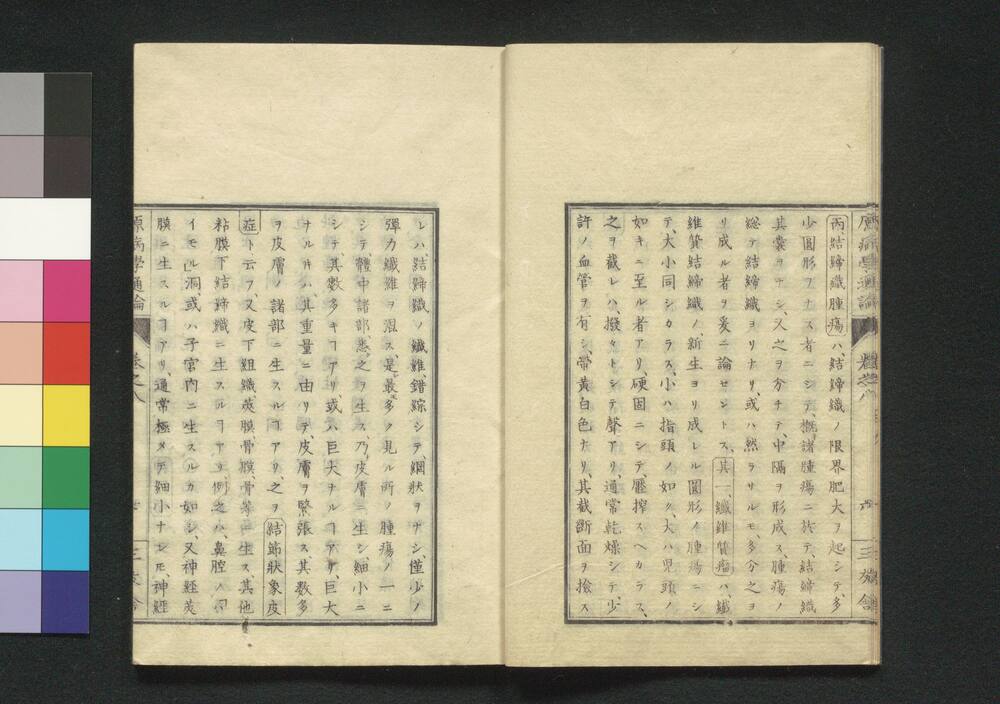 丙結締織腫瘍ハ、結締織ノ限界肥大ヲ起シテ、多
少圓形ヲナス者ニシテ、概諸腫瘍ニ於テ、結締織
其嚢ヲナシ、又之ヲ分チテ、中隔ヲ形成ス、腫瘍ノ
総テ結締織ヨリナリ、或ハ然ラサルモ、多分之ヨ
リ成ル者ヲ爰ニ論セントス、其一、纖維質瘤ハ、纖
維質結締織ノ、新生ヨリ成レル圓形ノ腫瘍ニシ
テ、大小同シカラス、小ハ指頭ノ如ク、大ハ児頭ノ
如キニ至ル者アリ、硬固ニシテ、壓搾スヘカラス、
之ヲ截レハ、撥々トシテ聲アリ、通常乾燥シテ、少
許ノ血管ヲ有シ、帶黄白色ナリ、其截断面ヲ撿ス
レハ、結締織ノ纖維、錯綜シテ、網狀ヲナシ、僅少ノ
彈力纖維ヲ混ス、是最多ク見ル所ノ腫瘍ノ一ニ
シテ、體中諸部悉之ヲ生ス、乃皮膚ニ生シ、細小ニ
シテ、其數多キヿアリ、或ハ巨大ナルヿアリ、巨大
ナル片ハ、其重量ニ由リテ、皮膚ヲ緊張ス、其數多
ヲ皮膚ノ諸部ニ生スルヿアリ、之ヲ結節狀象皮
症ト云フ、又皮下組織、莢膜骨膜、骨等ニ生ス、其他
粘膜下結締織ニ生スルヿアリ、例之ハ、鼻腔ノ
イモル洞、或ハ子宮内ニ生スルカ如シ、又神經莢
膜ニ生スルヿアリ、通常極メテ細小ナレモ、神經
原病學通論 卷之八